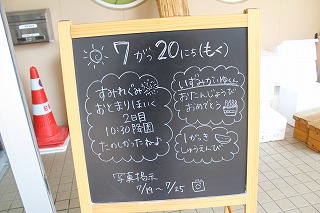 7がつ20にち(もく)
すみれぐみ
おとまりほいく
2日目
10:30降園
たのしかったね♪
おたんじょうび
おめでとう
1がっき
しゅうえんび
写真掲示
7/19〜7/25